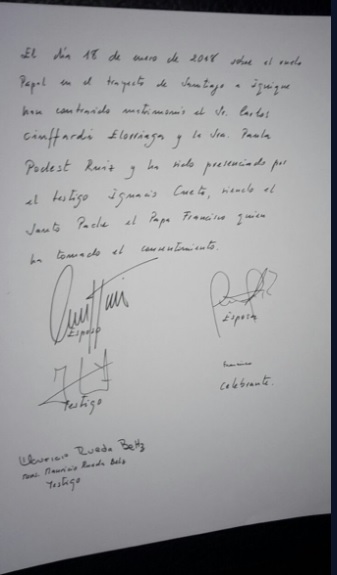 El día 18 de enero de 2018 sobre el vuelo
Papal en el trayecto de Santiago a Iquique
han contraido matrimonio el Sr. Carlos
Ciuffardi Elorriaga y la Sra. Paula
Podest Ruiz y ha sido presenciado por
el testigo Ignacio Cueto, siendo el
Santo Padre el Papa Francisco quien
ha tomado el consentimiento.
Esposo
Esposa
Testigo
Franciscus
Celebrante.
Mauricio Rueda Beltz
Mons. Mauricio Rueda Beltz
Testigo